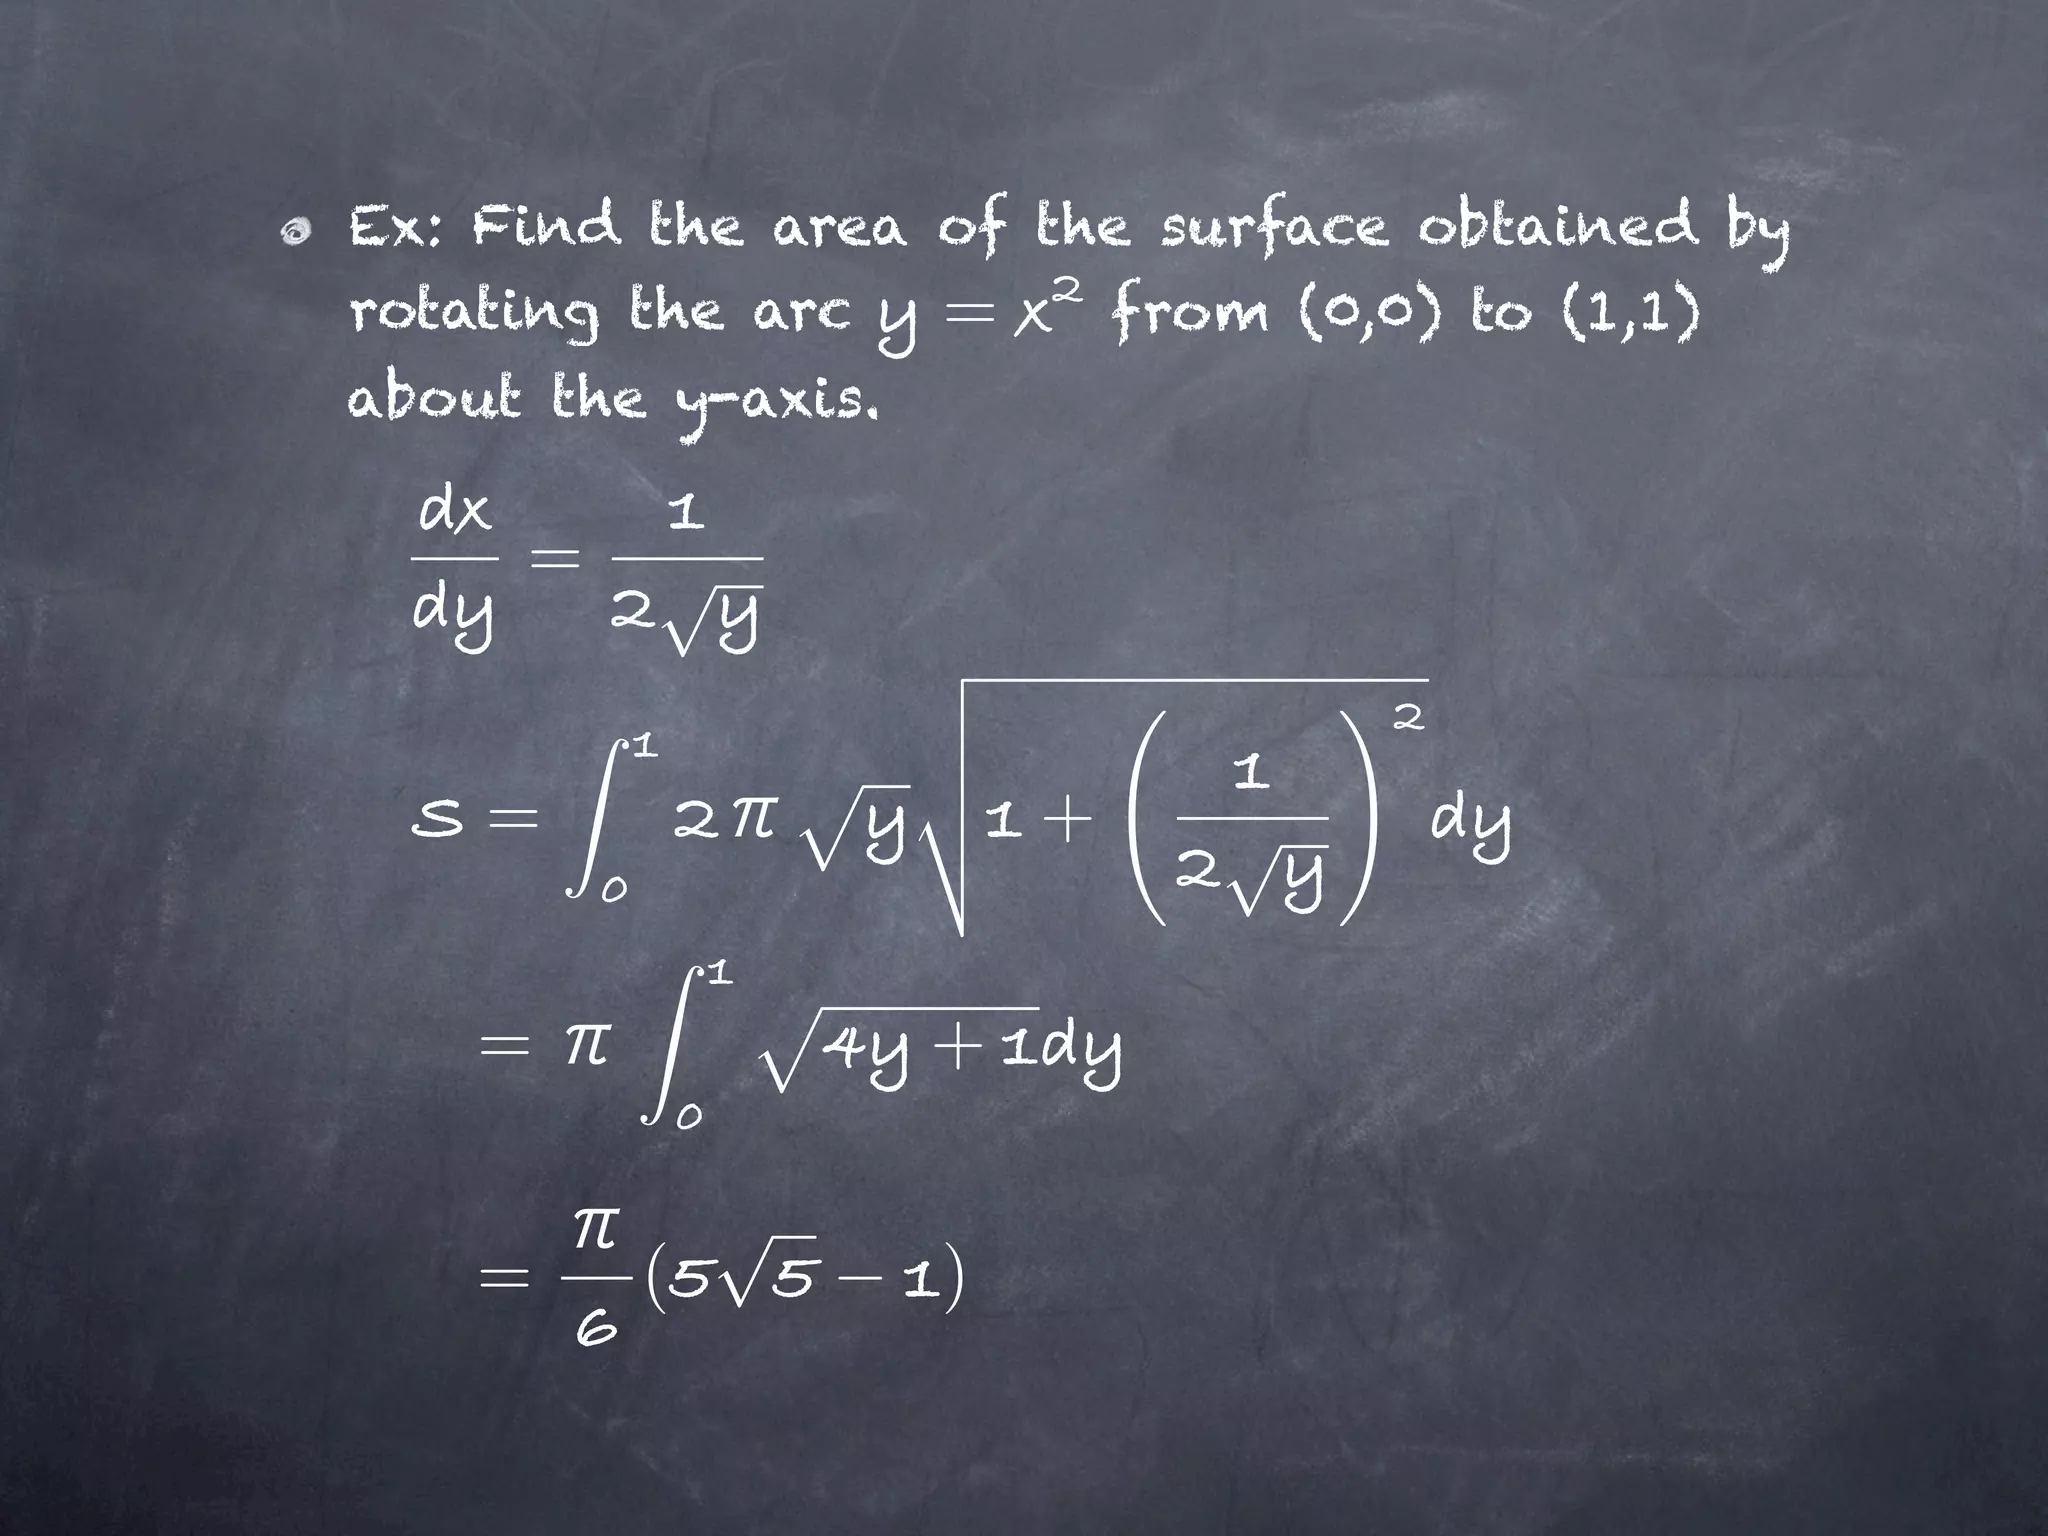 Ex: Find the area of the surface obtained by
rotating the arc y = x² from (0,0) to (1,1)
about the y-axis.
dx/dy = 1/(2√y)
S = ∫₀¹ 2π √y √(1 + (1/(2√y))²) dy
= π ∫₀¹ √(4y + 1) dy
= π/6 (5√5 − 1)